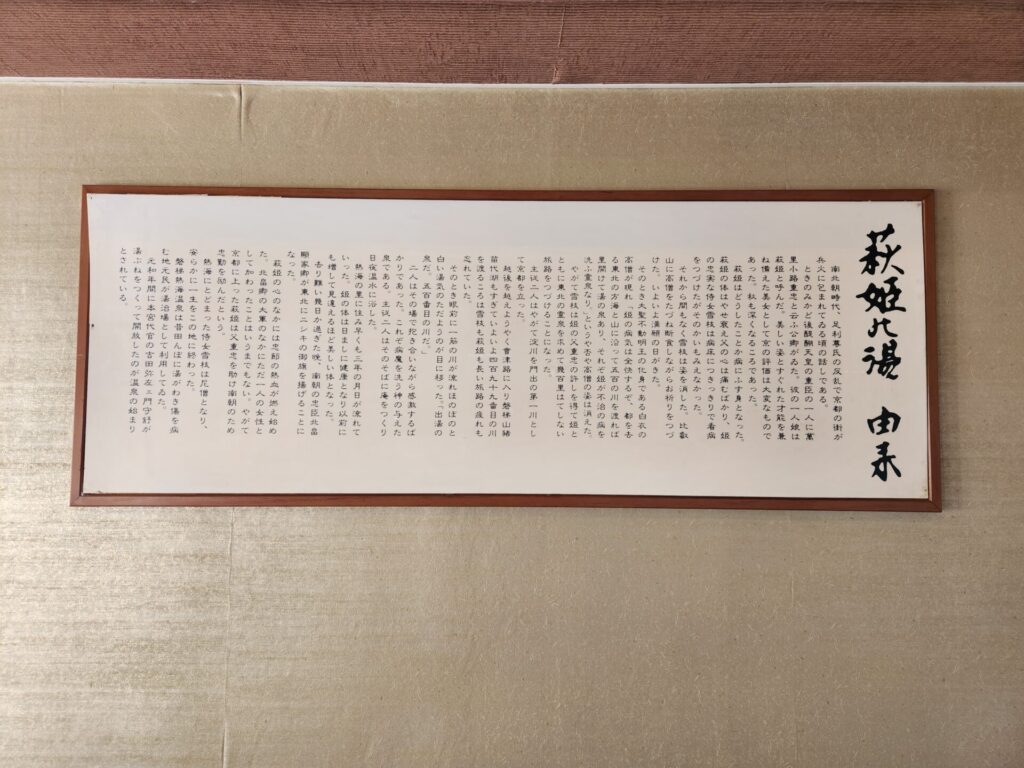 萩姫の湯 由来
南北朝時代、足利尊氏の反乱で京都の街が
兵火に包まれてゐる頃の話しである。
ときのみかど後醍醐天皇の重臣の一人に萬
里小路重忠と云ふ公卿がゐた。彼の一人娘は
萩姫と呼んだ。美しい姿とすぐれた才能を兼
ね備えた美女として京の評価は大変なもので
あった。秋も深くなるころであった。
萩姫はどうしたことか病にふす身となった。
萩姫の体はやせ衰え父の心は痛むばかり、姫
の忠実な侍女雪枝は病床につきっきりで看病
をつづけたがそのかいもみえなかった。
それから間もなく雪枝は姿を消した。比叡
山に高僧をたづね断食しながらお祈りをつづ
けた。いよいよ満願の日がきた。
そのとき大聖不動明王の化身である白衣の
高僧が現れ「姫の病気は全快するぞ、都を去
る東北の方海と山に沿って五百の川を渡れば
里開けて湯の泉あり、それぞ姫が不治の病を
洗ふ霊泉なり」というや否や高僧の姿は消えた。
やがて雪枝は姫の父重忠の許しを得て姫と
ともに東北の霊泉を求めて幾百里はてしない
旅路をつづけることになった。
主従二人はやがて淀川を門出の第一川とし
て京都を立った。
越後を越えようやく會津路に入り磐梯山猪
苗代湖もすぎていよいよ四百九十九番目の川
を渡るころは雪枝も萩姫も長い旅路の疲れも
忘れていた。
そのとき眼前に一筋の川が流れほのぼのと
白い湯気のただようのが目に移った。「出湯の
泉だ、五百番目の川だ。」
二人はその場で抱き合いながら感激するば
かりであった。これぞ病魔を洗う神の与えた
泉である。主従二人はそのそばに庵をつくり
日夜温水に浴した。
熱海の里に住み早くも三年の月日が流れて
いった。姫の体は日ましに健康となり以前に
も増して見違えるほど美しい体となった。
去り難い幾日か過ぎた晩、南朝の忠臣北畠
顕家卿が東北にニシキの御旗を揚げることに
なった。
萩姫の心のなかには忠節の熱血が燃え始め
た。北畠卿の大軍のなかにただ一人の女性と
して加わったことはいうまでもない。やがて
京都に上った萩姫は父重忠を助け南朝のため
忠勤を励んだという。
熱海にとどまった侍女雪枝は尼僧となり、
安らかに一生をこの地に終わった。
磐梯熱海温泉は昔田んぼに湯がわき傷を病
む地元民が湯治場として利用してゐた。
元和年間に本宮代官の古田弥左ェ門守舒が
湯ぶねをつくって開放したのが温泉の始まり
とされている。